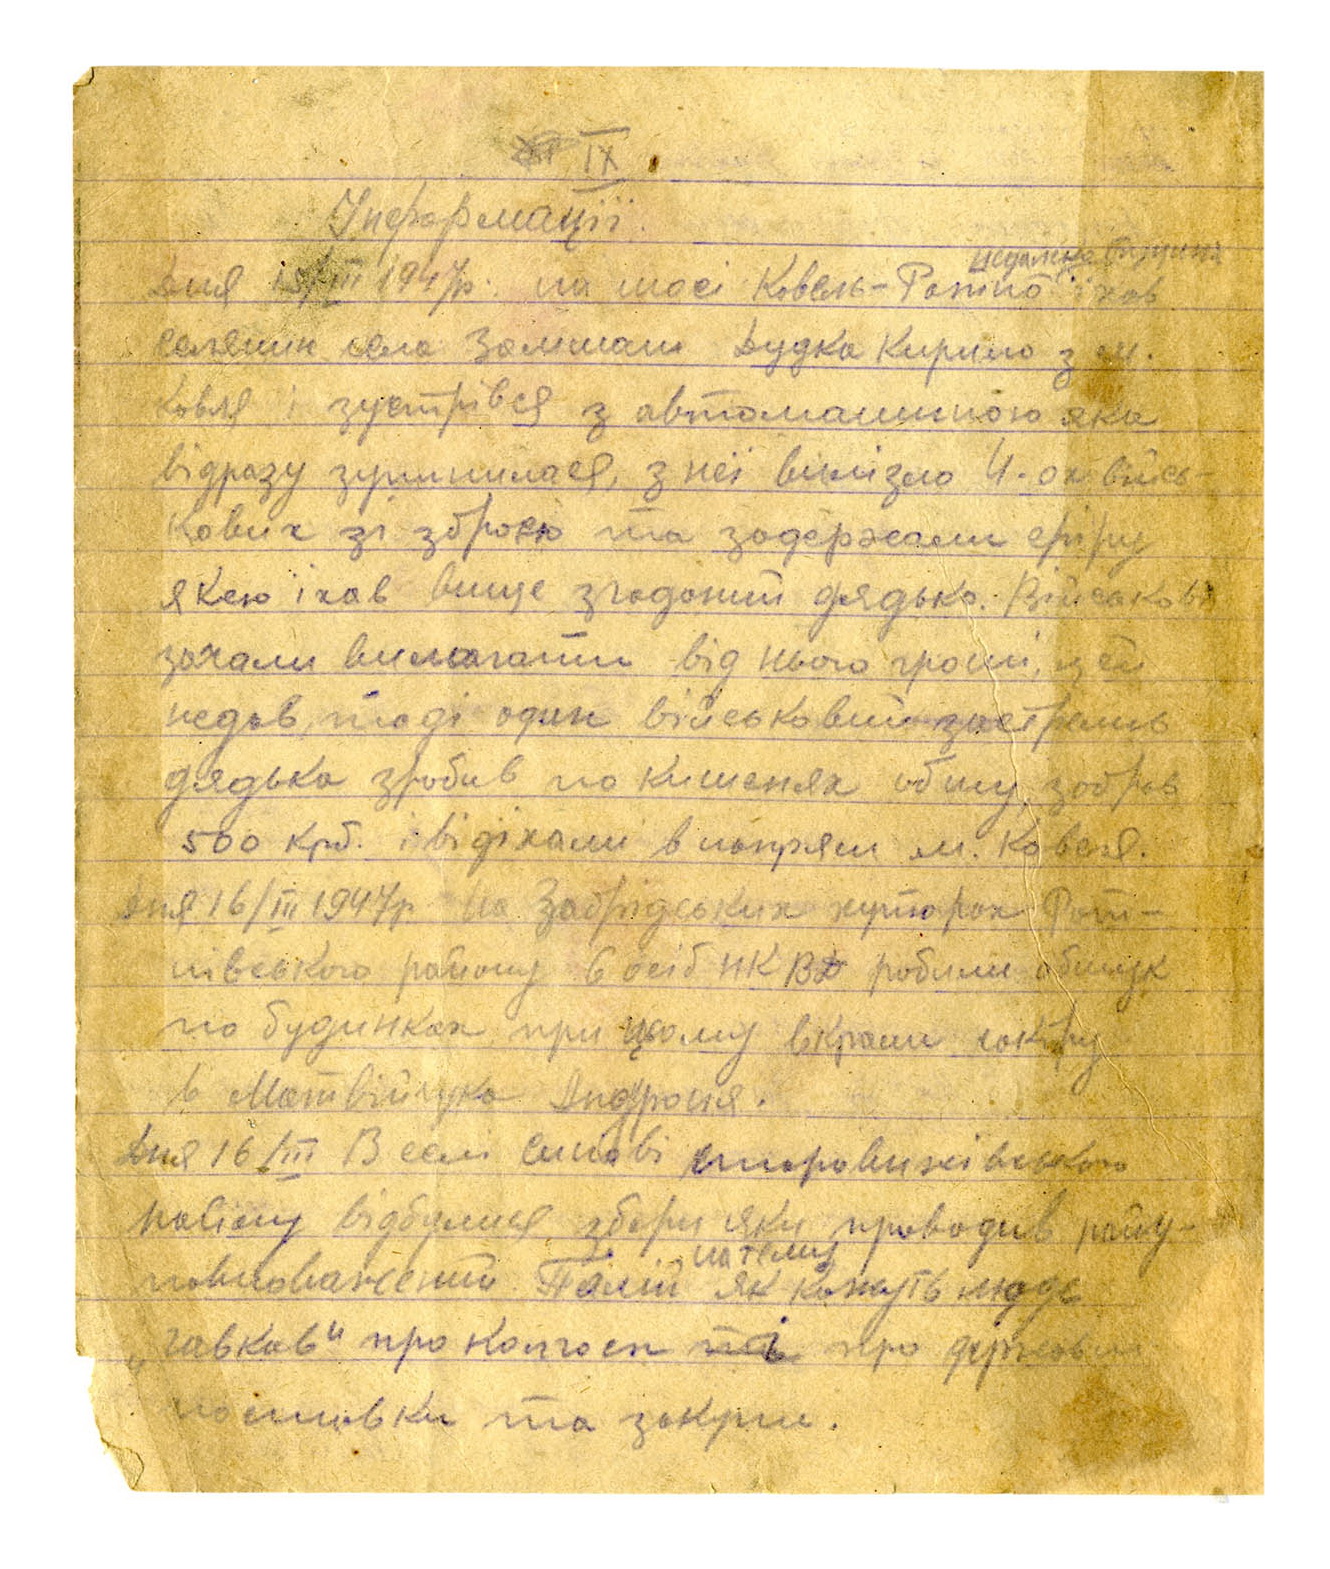 IX
Інформації.
недалеко
Дня 15/III 1947р. на шосі Ковель-Ратно їхав
селянин села Замшан Дудка Кирило з м.
Ковля і зустрівся з автомашиною яка
відразу зупинилася, з неї вилізло 4-ох війсь-
кових зі зброєю та задержали фіру
якою їхав вище згаданий дядько. Військові
зачали вимагати від нього гроші, цей
недав, тоді один військовий застрелив
дядька зробив по кишенях обшу, забрав
500 крб. і відїхали в напрям м. Ковеля.
Дня 16/III 1947р на Забрідських хуторах Рат-
нівського району 6 осіб НКВД робили обшук
по будинках при цьому вкрали
в Матвійчука Андрося.
Дня 16/III В селі Синові старовижівського
району відбулися збори яки проводив райу-
повноважений Палій на тему як кажуть люде
„гавкав" про колгосп і про державні
поставки та закупи.